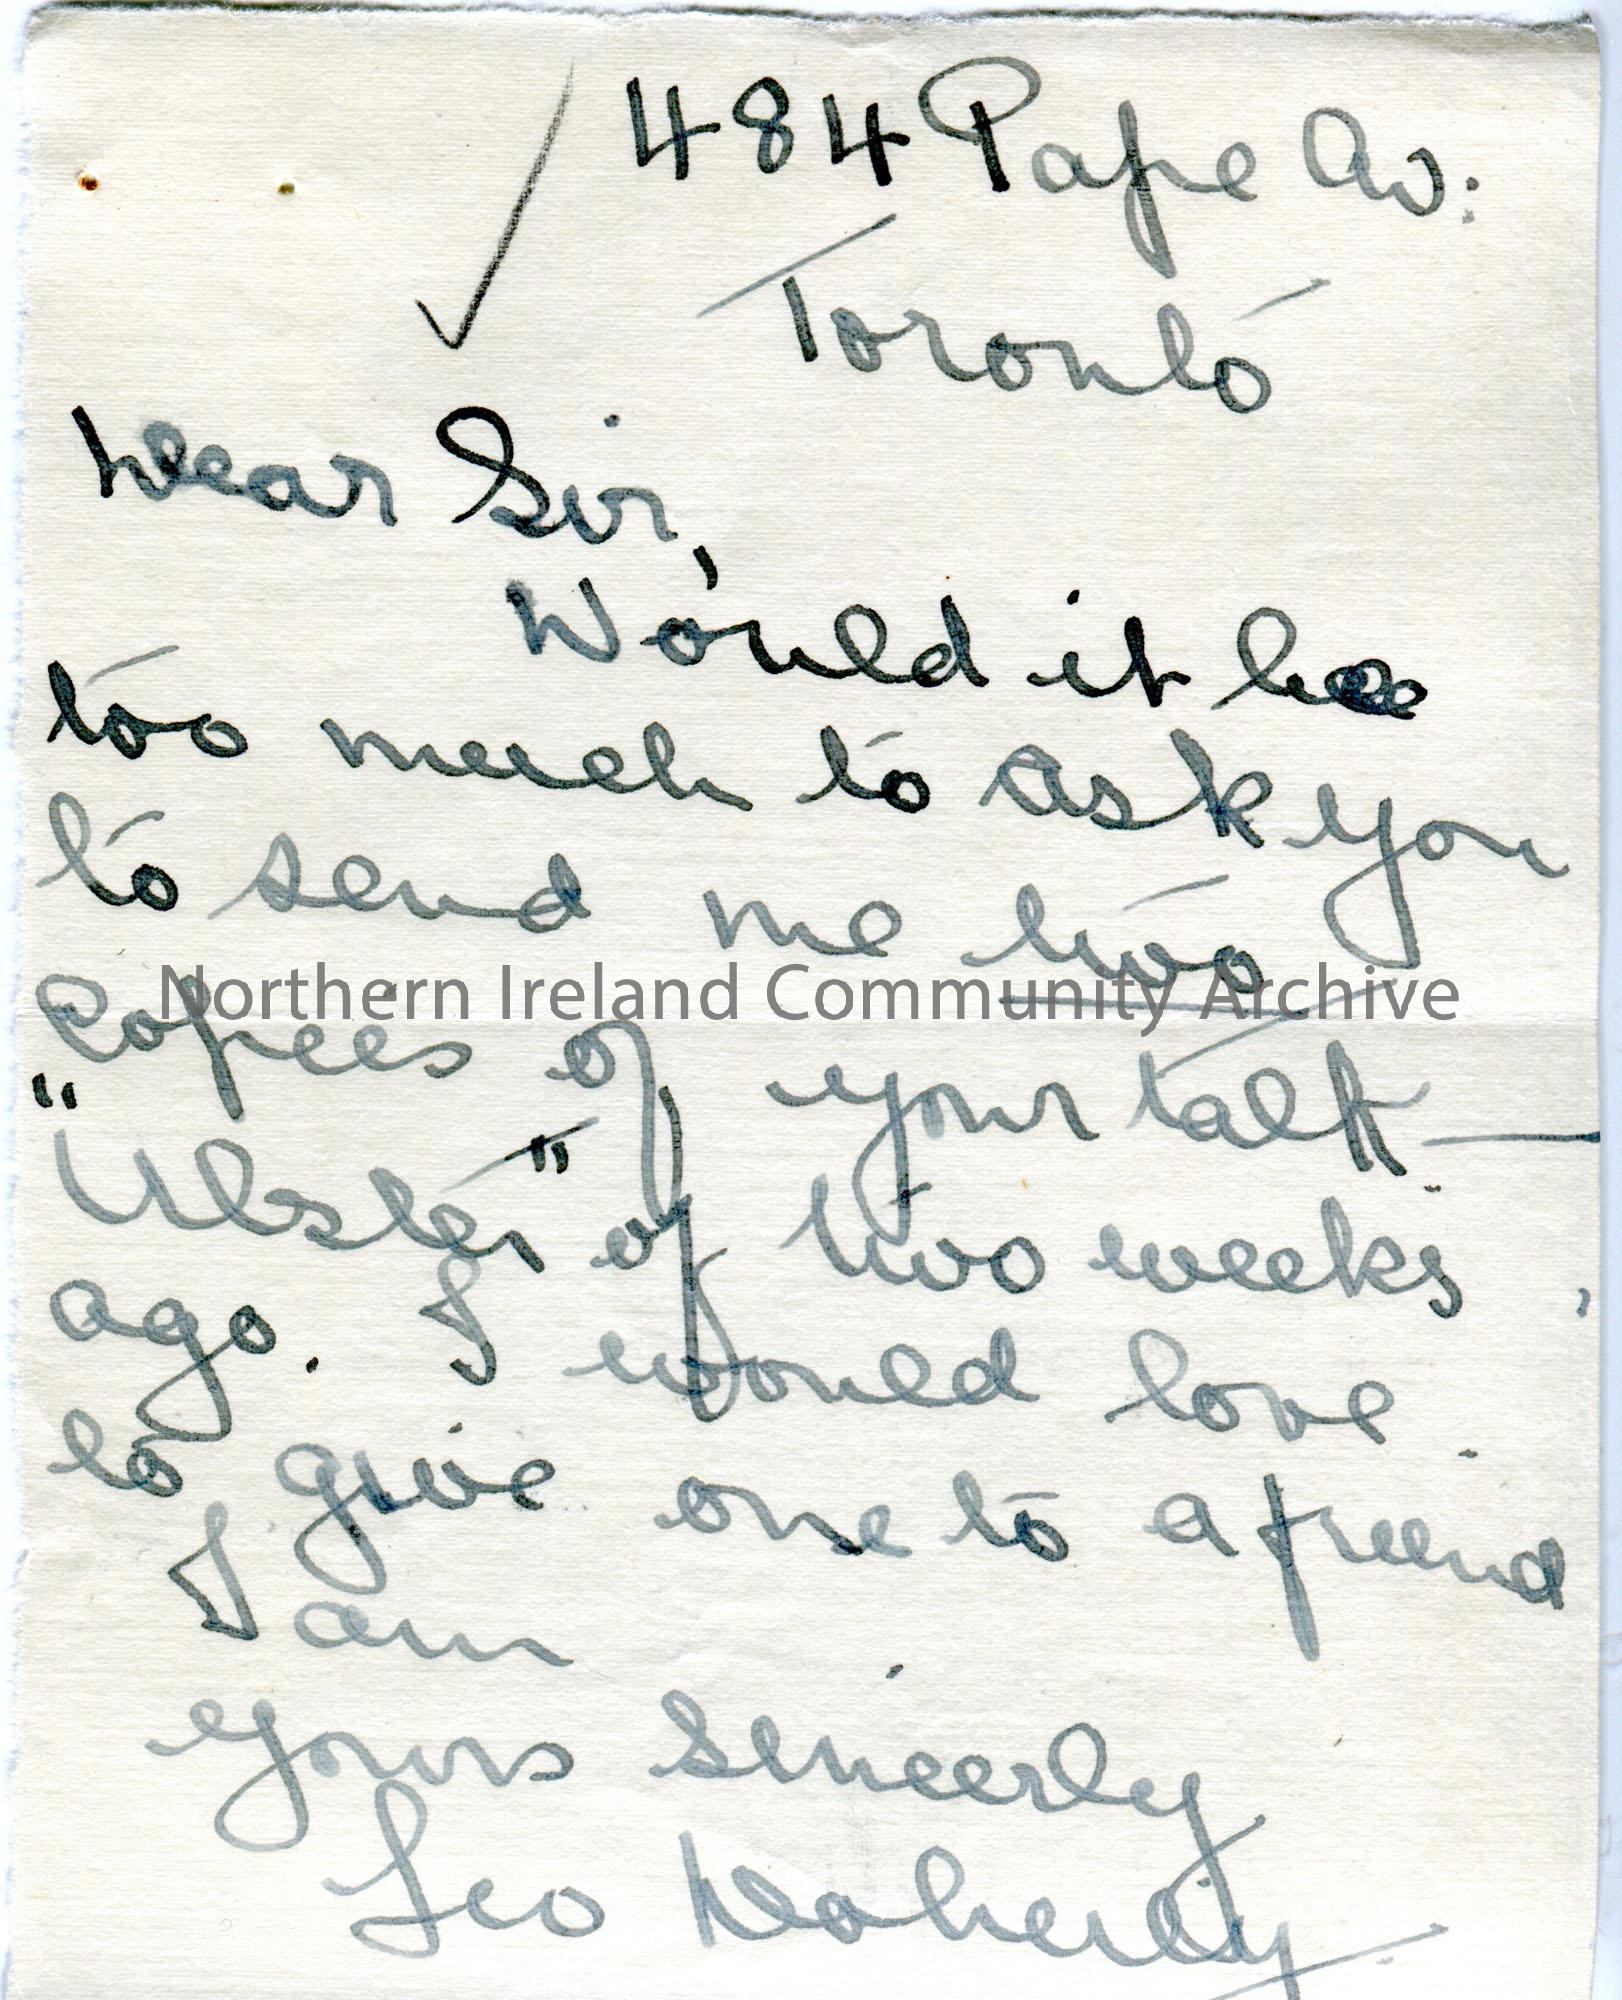 484 Pape Av:
Toronto
Dear Sir,
Would it be
too much to ask you
to send me two
Northern Ireland Community Archive
Copies of your talk —
"Ulster" of two weeks
ago. I would love
to give one to a freind
I am
Yours Sincerly
Leo Doherty